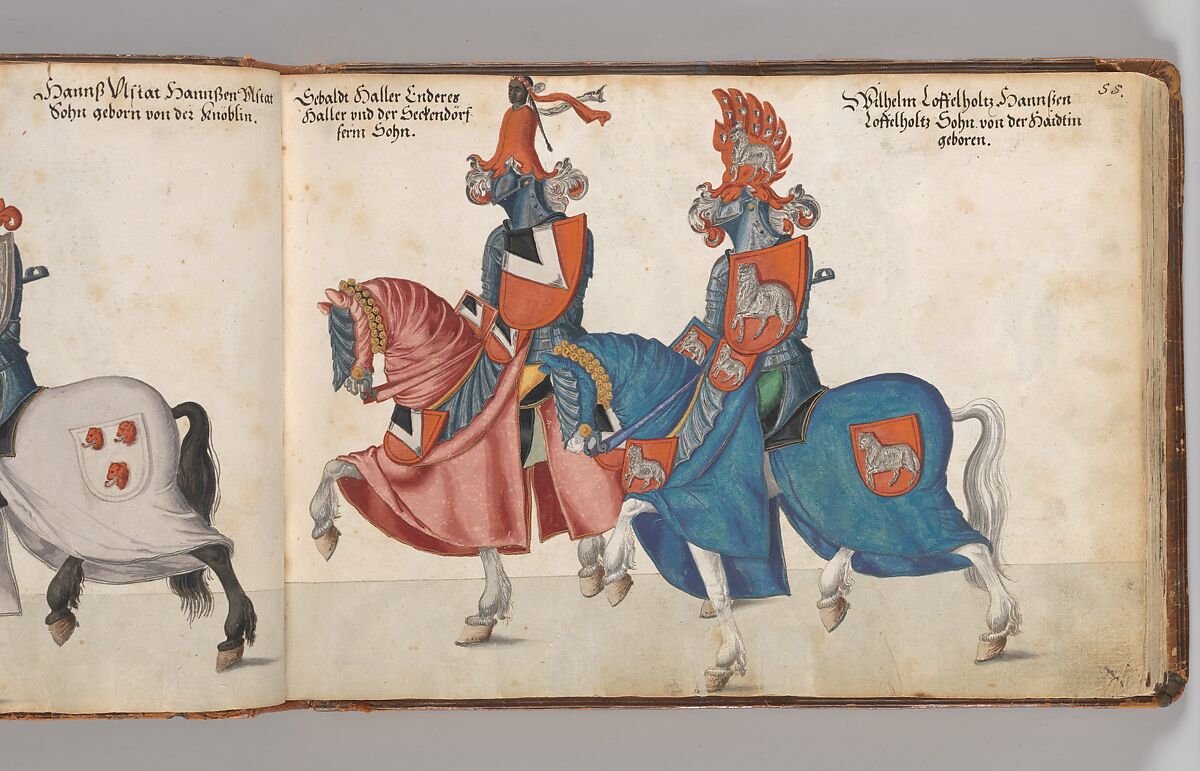 Hannß Vlstat Hannßen Vlstat
Sohn geborn von der Knoblin.
Sebaldt Haller Enderes
Haller vnd der Seckendörf
ferin Sohn.
Wilhelm Loffelholtz Hannßen
Loffelholtz Sohn von der Haidtin
geboren.
58.